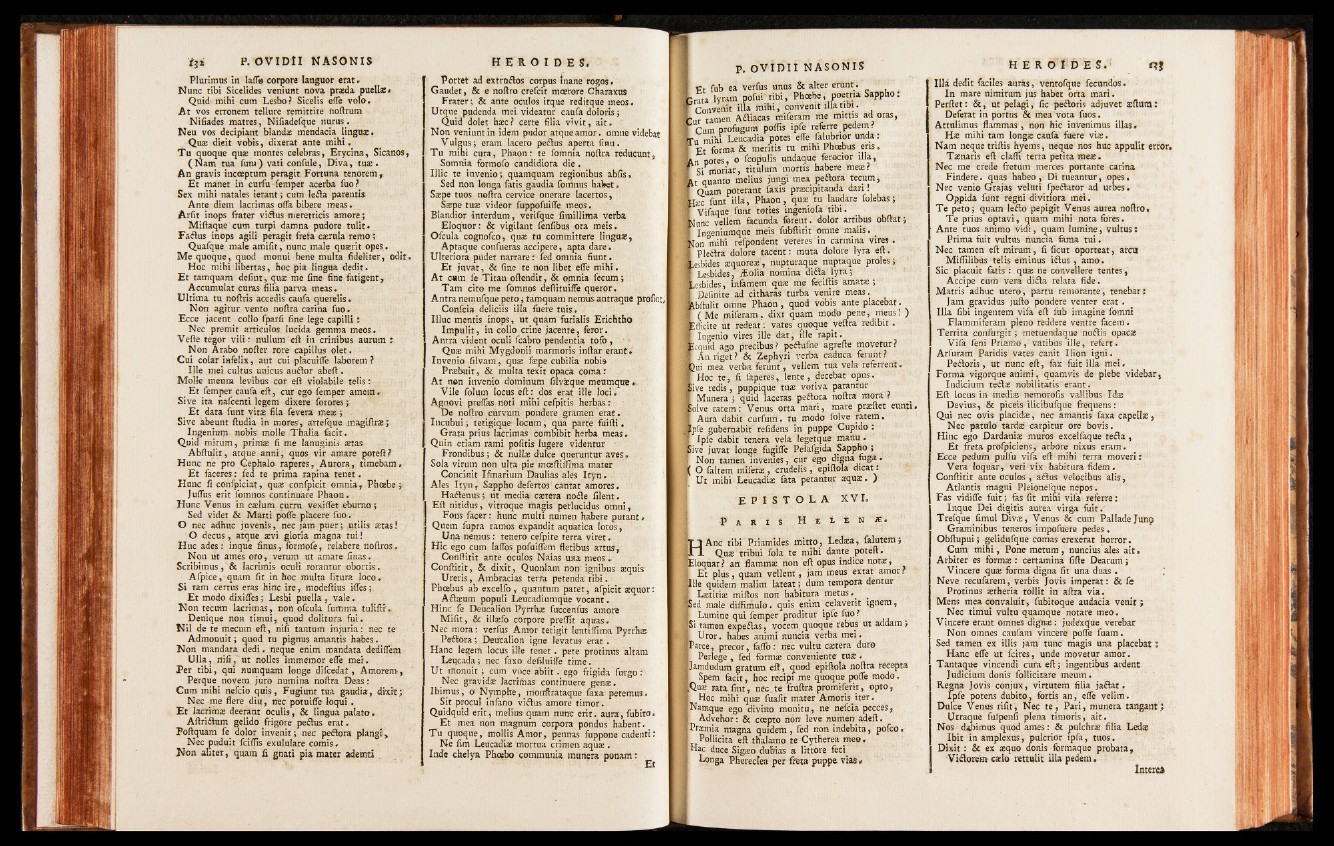 132 P. OVIDII NASONIS
Plurimus in laſſo corpore languor erat.
Nunc tibi Sicelides veniunt nova præda puellæ.
Quid mihi cum Lesbo? Sicelis eſſe volo.
At vos erronem tellure remittite noſtrum
Niſiades matres, Niſiadeſque nurus.
Neu vos decipiant blandæ mendacia linguæ.
Quæ dicit vobis, dixerat ante mihi.
Tu quoque quæ montes celebras, Erycina, Sicanos,
(Nam tua ſum) vati conſule, Diva, tuæ.
An gravis inceptum peragit Fortuna tenorem,
Et manet in curſu ſemper acerba ſuo?
Sex mihi natales ierant; cum lecta parentis
Ante diem lacrimas oſſa bibere meas.
Arſit inops frater victus meretricis amore;
Miſtaque cum turpi damna pudore tulit.
Factus inops agili peragit freta cærula remo;
Quaſque male amiſit, nunc male quærit opes.
Me quoque, quod monui bene multa fideliter, odit.
Hoc mihi libertas, hoc pia lingua dedit.
Et tamquam deſint, quæ me ſine fine fatigent,
Accumulat curas filia parva meas.
Ultima tu noſtris accedis cauſa querelis.
Non agitur vento noſtra carina ſuo.
Ecce jacent collo ſparſi ſine lege capilli:
Nec premit articulos lucida gemma meos.
Veſte tegor vili: nullum eſt in crinibus aurum:
Non Arabo noſter rore capillus olet.
Cui colar infelix, aut cui placuiſſe laborem?
Ille mei cultus unicus auctor abeſt.
Molle meum levibus cor eſt violabile telis:
Et ſemper cauſa eſt, cur ego ſemper amem.
Sive ita naſcenti legem dixere ſorores;
Et data ſunt vitæ fila ſevera meæ;
Sive abeunt ſtudia in mores, arteſque magiſtræ;
Ingenium nobis molle Thalia facit.
Quid mirum, primæ ſi me lanuginis ætas
Abſtulit, atque anni, quos vir amare poteſt?
Hunc ne pro Cephalo raperes, Aurora, timebam.
Et faceres: ſed te prima rapina tenet.
Hunc ſi conſpiciat, quæ conſpicit omnia, Phœbe;
Juſſus erit ſomnos continuare Phaon.
Hunc Venus in cælum curru vexiſſet eburno;
Sed videt & Marti poſſe placere ſuo.
O nec adhuc juvenis, nec jam puer; utilis ætas!
O decus, atque ævi gloria magna tui!
Huc ades: inque ſinus, formoſe, relabere noſtros.
Non ut ames oro, verum ut amare ſinas.
Scribimus, & lacrimis oculi rorantur obortis.
Aſpice, quam ſit in hoc multa litura loco.
Si tam certus eras hinc ire, modeſtius iſſes;
Et modo dixiſſes; Lesbi puella, vale.
Non tecum lacrimas, non oſcula ſumma tuliſti.
Denique non timui, quod dolitura fui.
Nil de te mecum eſt, niſi tantum injuria: nec te
Admonuit; quod tu pignus amantis habes.
Non mandata dedi. neque enim mandata dediſſem
Ulla, niſi, ut nolles immemor eſſe mei.
Per tibi, qui numquam longe diſcedat, Amorem,
Perque novem juro numina noſtra Deas:
Cum mihi neſcio quis, Fugiunt tua gaudia, dixit;
Nec me flere diu, nec potuiſſe loqui.
Et lacrimæ deerant oculis, & lingua palato.
Aſtrictum gelido frigore pectus erat.
Poſtquam ſe dolor invenit; nec pectora plangi,
Nec puduit ſciſſis exululare comis.
Non aliter, quam ſi gnati pia mater ademti
HEROIDES.
Portet ad extructos corpus inane rogos.
Gaudet, & e noſtro creſcit mœrore Charaxus
Frater; & ante oculos itque reditque meos.
Utque pudenda mei videatur cauſa doloris;
Quid dolet hæc? certe filia vivit, ait.
Non veniunt in idem pudor atque amor. omne videbat
Vulgus; eram lacero pectus aperta ſinu.
Tu mihi cura, Phaon: te ſomnia noſtra reducunt,
Somnia formoſo candidiora die.
Illic te invenio; quamquam regionibus abſis.
Sed non longa ſatis gaudia ſomnus habet.
Sæpe tuos noſtra cervice onerare lacertos,
Sæpe tuæ videor ſuppoſuiſſe meos.
Blandior interdum, veriſque ſimillima verba
Eloquor: & vigilant ſenſibus ora meis.
Oſcula cognoſco, quæ tu committere linguæ,
Aptaque conſueras accipere, apta dare.
Ulteriora pudet narrare: ſed omnia fiunt.
Et juvat, & ſine te non libet eſſe mihi.
At cum ſe Titan oſtendit, & omnia ſecum;
Tam cito me ſomnos deſtituiſſe queror.
Antra nemuſque peto; tamquam nemus antraque proſint,
Conſcia deliciis illa fuere tuis.
Illuc mentis inops, ut quam furialis Erichtho
Impulit, in collo crine jacente, feror.
Antra vident oculi ſcabro pendentia tofo,
Quæ mihi Mygdonii marmoris inſtar erant.
Invenio ſilvam, quæ ſæpe cubilia nobis
Præbuit, & multa texit opaca coma:
At non invenio dominum ſilvæque meumque.
Vile ſolum locus eſt: dos erat ille loci.
Agnovi preſſas noti mihi ceſpitis herbas:
De noſtro curvum pondere gramen erat.
Incubui; tetigique locum, qua parte fuiſti.
Grata prius lacrimas combibit herba meas.
Quin etiam rami poſitis lugere videntur
Frondibus; & nullæ dulce queruntur aves.
Sola virum non ulta pie mœſtiſſima mater
Concinit Iſmarium Daulias ales Ityn.
Ales Ityn, Sappho deſertos cantat amores.
Hactenus; ut media cætera nocte ſilent.
Eſt nitidus, vitroque magis perlucidus omni,
Fons ſacer: hunc multi numen habere putant.
Quem ſupra ramos expandit aquatica lotos,
Una nemus: tenero ceſpite terra viret.
Hic ego cum laſſos poſuiſſem fletibus artus,
Conſtitit ante oculos Naias una meos.
Conſtitit, & dixit, Quoniam non ignibus æquis
Ureris, Ambracias terra petenda tibi.
Phœbus ab excelſo, quantum patet, aſpicit æquor:
Actæum populi Leucadiumque vocant.
Hinc ſe Deucalion Pyrrhæ ſuccenſus amore
Miſit, & illæſo corpore preſſit aquas.
Nec mora: verſus Amor tetigit lentiſſima Pyrrhæ
Pectora: Deucalion igne levatus erat.
Hanc legem locus ille tenet. pete protinus altam
Leucada; nec ſaxo deſiluiſſe time.
Ut monuit; cum voce abiit. ego frigida ſurgo:
Nec gravidæ lacrimas continuere genæ.
Ibimus, o Nymphe, monſtrataque ſaxa petemus.
Sit procul inſano victus amore timor.
Quidquid erit, melius quam nunc erit. aura, ſubito.
Et mea non magnum corpora pondus habent.
Tu quoque, mollis Amor, pennas ſuppone cadenti:
Ne ſim Leucadiæ mortua crimen aquæ.
Inde chelyn Phœbo communia munera ponam:
Et
P. OVIDII NASONIS
Et ſub ea verſus unus & alter erunt.
Grata lyram poſui tibi, Phœbe, poetria Sappho:
Convenit illa mihi, convenit illa tibi.
Cur tamen Actiacas miſeram me mittis ad oras,
Cum profugum poſſis ipſe referre pedem?
Tu mihi Leucadia potes eſſe ſalubrior unda:
Et forma & meritis tu mihi Phœbus eris.
An potes, o ſcopulis undaque ferocior illa,
Si moriar, titulum mortis habere meæ?
At quanto melius jungi mea pectora tecum,
Quam poterant ſaxis præcipitanda dari!
Hæc ſunt illa, Phaon, quæ tu laudare ſolebas;
Viſaque ſunt toties ingenioſa tibi.
Nunc vellem facunda forent. dolor artibus obſtat;
Ingeniumque meis ſubſtitit omne malis.
Non mihi reſpondent veteres in carmina vires.
Plectra dolore tacent: muta dolore lyra eſt.
Lesbides æquoreæ, nupturaque nuptaque proles;
Lesbides, Æolia nomina dicta lyra;
Lesbides, infamem quæ me feciſtis amatæ;
Deſinite ad citharas turba venire meas.
Abſtulit omne Phaon, quod vobis ante placebat.
(Me miſeram, dixi quam modo pene, meus!)
Efficite ut redeat: vates quoque veſtra redibit.
Ingenio vires ille dat, ille rapit.
Ecquid ago precibus? pectuſne agreſte movetur?
An riget? & Zephyri verba caduca ferunt?
Qui mea verba ferunt, vellem tua vela referrent.
Hoc te, ſi ſaperes, lente, decebat opus.
Sive redis, puppique tuæ votiva parantur
Munera; quid laceras pectora noſtra mora?
Solve ratem: Venus orta mari, mare præſtet eunti.
Aura dabit curſum. tu modo ſolve ratem.
Ipſe gubernabit reſidens in puppe Cupido:
Ipſe dabit tenera vela legetque manu.
Sive juvat longe fugiſſe Pelaſgida Sappho;
Non tamen invenies, cur ego digna fuga.
(O ſaltem miſeræ, crudelis, epiſtola dicat:
Ut mihi Leucadiæ fata petantur aquæ.)
EPISTOLA XVI.
PARIS HELENÆ.
HAnc tibi Priamides mitto, Ledæa, ſalutem;
Quæ tribui ſola te mihi dante poteſt.
Eloquar? an flammæ non eſt opus indice notæ,
Et plus, quam vellem, jam meus extat amor?
Ille quidem malim lateat; dum tempora dentur
Lætitiæ miſtos non habitura metus.
Sed male diſſimulo. quis enim celaverit ignem,
Lumine qui ſemper proditur ipſe ſuo?
Si tamen expectas, vocem quoque rebus ut addam;
Uror. habes animi nuncia verba mei.
Parce, precor, faſſo: nec vultu cætera duro
Perlege, ſed formæ conveniente tuæ.
Jamdudum gratum eſt, quod epiſtola noſtra recepta
Spem facit, hoc recipi me quoque poſſe modo.
Quæ rata ſint, nec te fruſtra promiſerit, opto,
Hoc mihi quæ ſuaſit mater Amoris iter.
Namque ego divino monitu, ne neſcia pecces,
Advehor: & cœpto non leve numen adeſt.
Præmia magna quidem, ſed non indebita, poſco.
Pollicita eſt thalamo te Cytherea meo.
Hac duce Sigæo dubias a littore feci
Longa Phereclea per freta puppe vias.
HEROIDES. 133
Illa dedit faciles auras, ventoſque ſecundos.
In mare nimirum jus habet orta mari.
Perſtet: &, ut pelagi, ſic pectoris adjuvet æſtum:
Deferat in portus & mea vota ſuos.
Attulimus flammas, non hic invenimus illas.
Hæ mihi tam longæ cauſa fuere viæ.
Nam neque triſtis hyems, neque nos huc appulit error.
Tænaris eſt claſſi terra petita meæ.
Nec me crede fretum merces portante carina
Findere. quas habeo, Di tueantur, opes.
Nec venio Grajas veluti ſpectator ad urbes.
Oppida ſunt regni divitiora mei.
Te peto; quam lecto pepigit Venus aurea noſtro.
Te prius optavi, quam mihi nota fores.
Ante tuos animo vidi, quam lumine, vultus:
Prima fuit vultus nuncia fama tui.
Nec tamen eſt mirum, ſi ſicut oporteat, arcu
Miſſilibus telis eminus ictus, amo.
Sic placuit fatis: quæ ne convellere tentes,
Accipe cum vera dicta relata fide.
Matris adhuc utero, partu remorante, tenebar:
Jam gravidus juſto pondere venter erat.
Illa ſibi ingentem viſa eſt ſub imagine ſomni
Flammiferam pleno reddere ventre facem.
Territa conſurgit; metuendaque noctis opacæ
Viſa ſeni Priamo, vatibus ille, refert.
Arſuram Paridis vates canit Ilion igni.
Pectoris, ut nunc eſt, fax fuit illa mei.
Forma vigorque animi, quamvis de plebe videbar,
Indicium tectæ nobilitatis erant.
Eſt locus in mediæ nemoroſis vallibus Idæ
Devius, & piceis ilicibuſque frequens:
Qui nec ovis placidæ, nec amantis ſaxa capellæ,
Nec patulo tardæ carpitur ore bovis.
Hinc ego Dardaniæ muros excelſaque tecta,
Et freta proſpiciens, arbore nixus eram.
Ecce pedum pulſu viſa eſt mihi terra moveri:
Vera loquar, veri vix habitura fidem.
Conſtitit ante oculos, actus velocibus alis,
Atlantis magni Pleioneſque nepos.
Fas vidiſſe fuit; fas ſit mihi viſa referre:
Inque Dei digitis aurea virga fuit.
Treſque ſimul Divæ, Venus & cum Pallade Juno
Graminibus teneros impoſuere pedes.
Obſtupui; geliduſque comas erexerat horror.
Cum mihi, Pone metum, nuncius ales ait.
Arbiter es formæ: certamina ſiſte Dearum;
Vincere quæ forma digna ſit una duas.
Neve recuſarem, verbis Jovis imperat: & ſe
Protinus ætheria tollit in aſtra via.
Mens mea convaluit, ſubitoque audacia venit;
Nec timui vultu quamque notare meo.
Vincere erant omnes dignæ: judexque verebar
Non omnes cauſam vincere poſſe ſuam.
Sed tamen ex illis jam tunc magis una placebat:
Hanc eſſe ut ſcires, unde movetur amor.
Tantaque vincendi cura eſt; ingentibus ardent
Judicium donis ſollicitare meum.
Regna Jovis conjux, virtutem filia jactat.
Ipſe potens dubito, fortis an, eſſe velim.
Dulce Venus riſit, Nec te, Pari, munera tangant;
Utraque ſuſpenſi plena timoris, ait.
Nos dabimus quod ames: & pulchræ filia Ledæ
Ibit in amplexus, pulcrior ipſa, tuos.
Dixit: & ex æquo donis formaque probata,
Victorem cælo rettulit illa pedem.
Interea